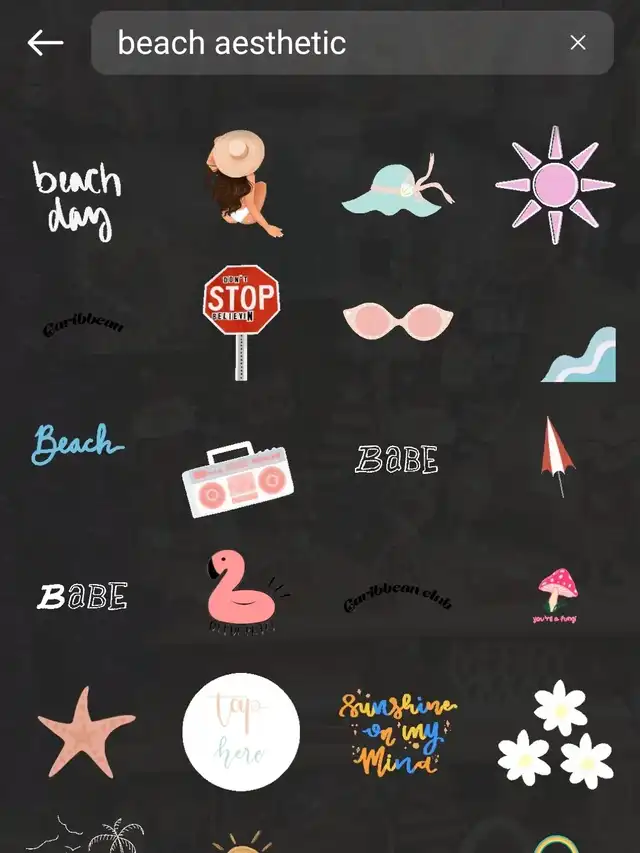 beach aesthetic
beach
day
Caribbean
DON'T
STOP
BELIEVIN
Beach
BABE
BABE
Caribbean club
you're a fungi
tap
here
Sunshine
on my
Mind